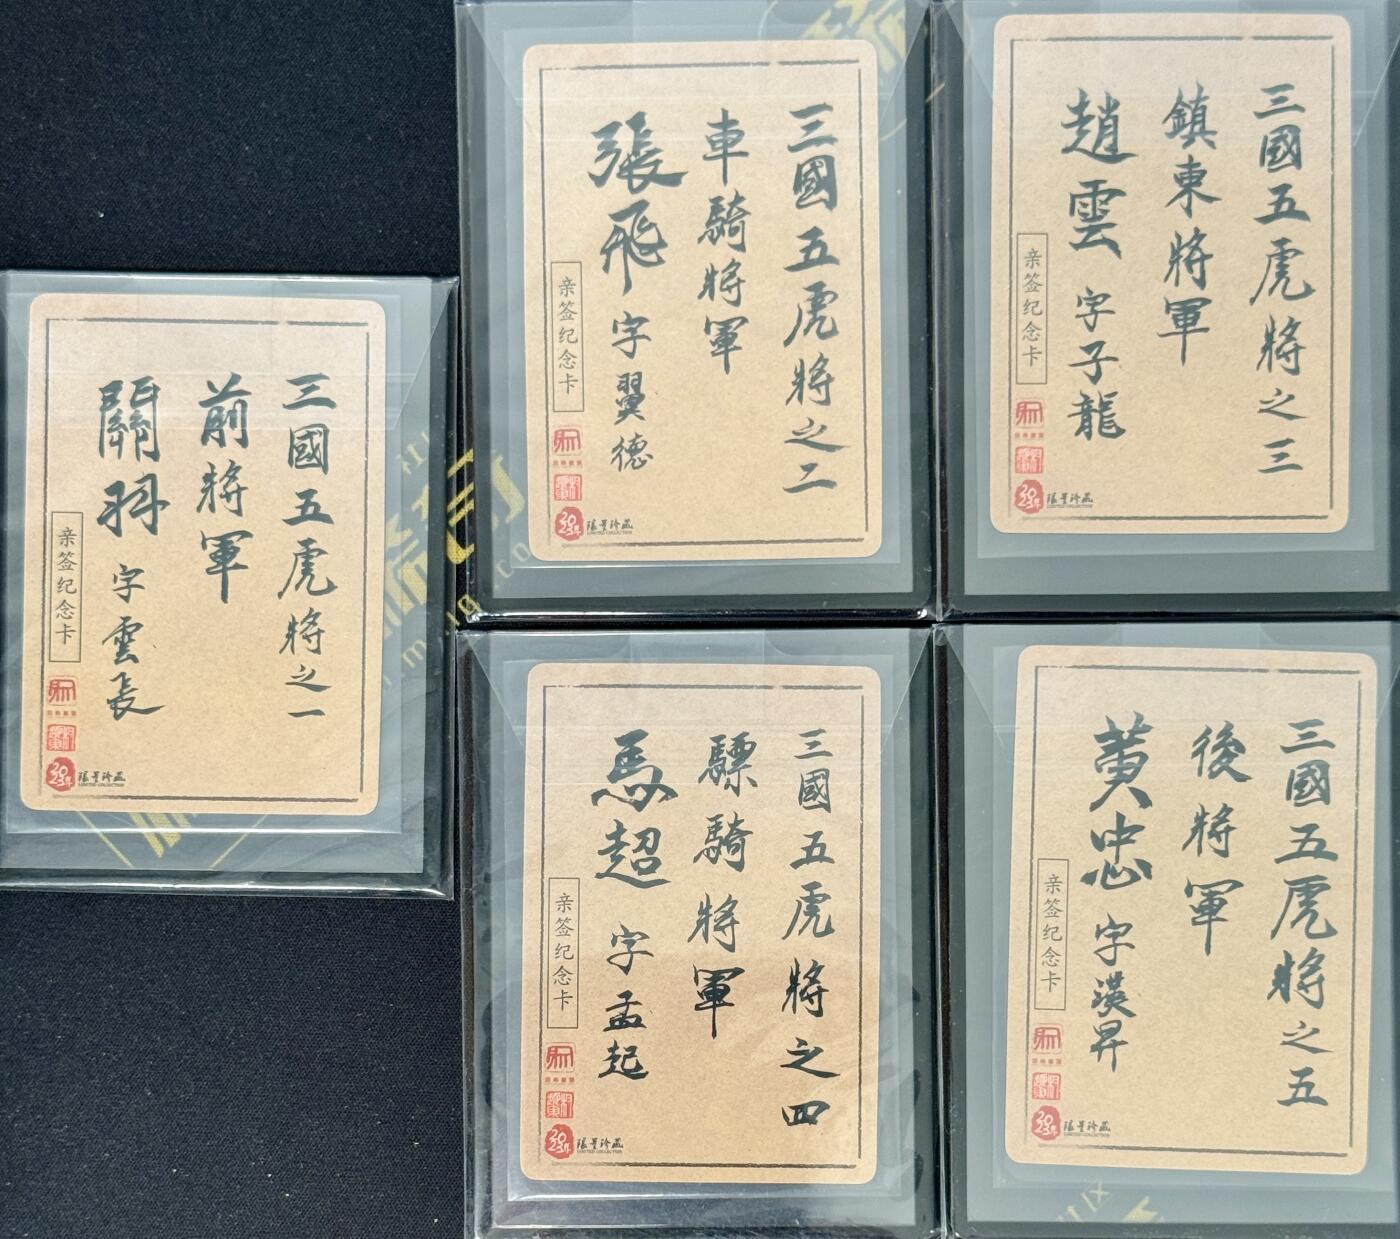 三國五虎將之一
前將軍
關羽 字雲長
亲签纪念卡
2023年
LIMITED COLLECTION
三國五虎將之二
車騎將軍
張飛 字翼德
亲签纪念卡
2023年
LIMITED COLLECTION
三國五虎將之三
鎮東將軍
趙雲 字子龍
亲签纪念卡
2023年
LIMITED COLLECTION
三國五虎將之四
驃騎將軍
馬超 字孟起
亲签纪念卡
2023年
LIMITED COLLECTION
三國五虎將之五
後將軍
黃忠 字漢昇
亲签纪念卡
2023年
LIMITED COLLECTION